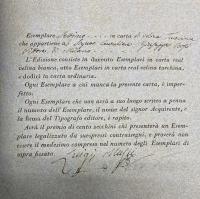 Esemplare ... in carta di velina
che appartiene a Signor
L'Edizione consiste in duecento Esemplari in carta real
velina bianca, otto Esemplari in carta real velina turchina,
e dodici in carta ordinaria.
Ogni Esemplare a cui manca la presente carta, è imper-
fetto.
Ogni Esemplare che non avrà a suo luogo scritto a penna
il numero dell'Esemplare, il nome del signor Acquirente, e
la firma del Tipografo editore, è rapito.
Avrà il premio di cento zecchini chi presenterà un Esem-
plare legalizzato da suespressi contrassegni, e proverà non
essere il medesimo compreso nel numero degli Esemplari di
sopra fissato
Luigi Mussi